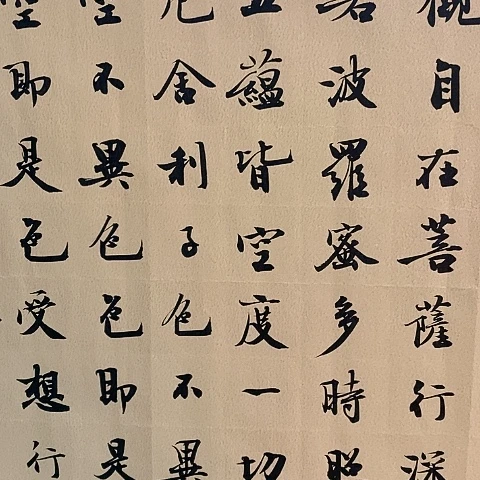 觀自在菩薩行深
若波羅蜜多時照
五蘊皆空度一切
厄舍利子色不異
空不異色色即是
空即是色受想行